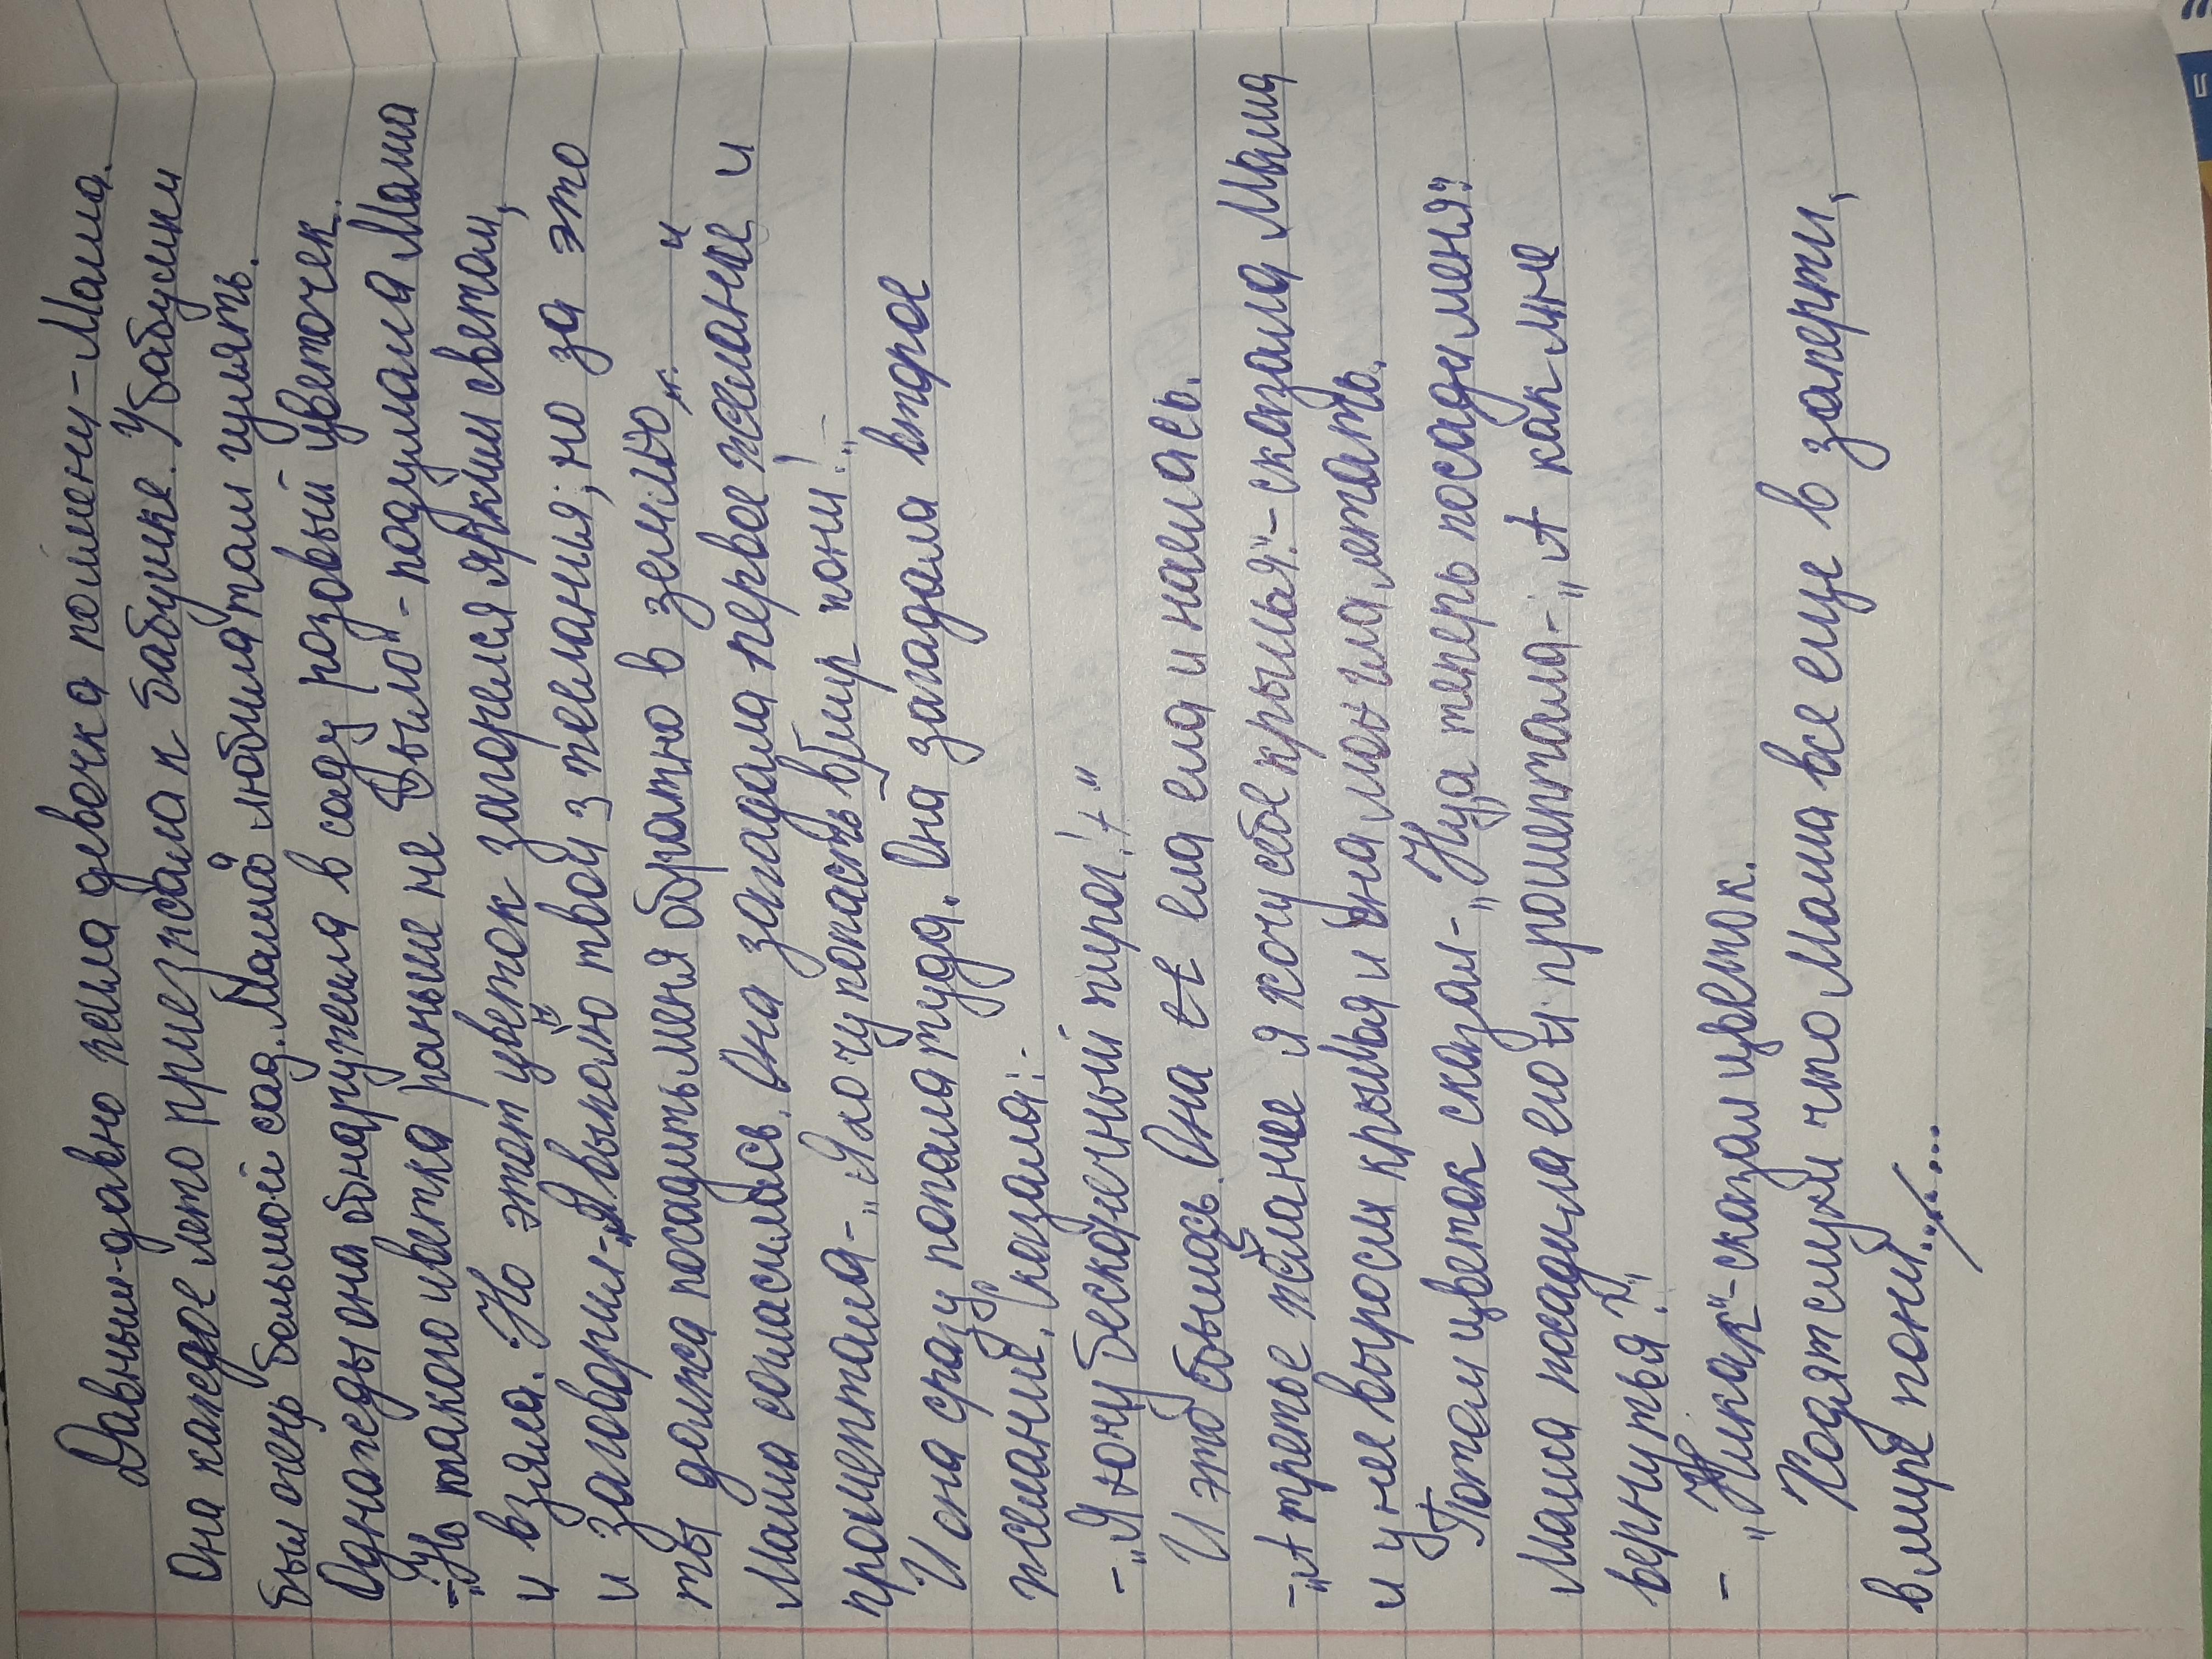 Давным-давно жила девочка по имени - Маша.
Она каждое лето приезжала к бабушке. У бабушки
был очень большой сад. Маша любила там гулять.
Однажды она обнаружила в саду розовый цветочек.
- „Но такого цветка раньше не было" - подумала Маша
и взяла. Но этот цветок загорелся ярким светом,
и заговорил - „Я выполню твои 3 желания; но за это
ты должа посадить меня обратно в землю".
Маша согласилась. Она загадала первое желание и
прошептала - „Я хочу попасть в мир пони!"
И она сразу попала туда. Она загадала второе
желание. Сказала:
- „Я хочу бесконечный пирог!"
И это сбылось. Она ела ела и наелась.
- „А третье желание я хочу себе крылья." - сказала Маша
и у нее выросли крылья и она могла летать.
Потом цветок сказал - „Ну а теперь посади меня"
Маша посадила его и прошептала - „А как мне
вернутья?"
- „Никак" - сказал цветок.
Ходят слухи что Маша все еще в заперти,
в мире пони......